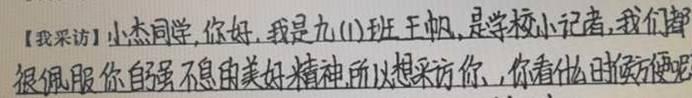 【我采访】小杰同学,你好,我是九(1)班王帆,是学校小记者,我们都
很佩服你自强不息的美好精神,所以想采访你、,你看什么时候方便呢